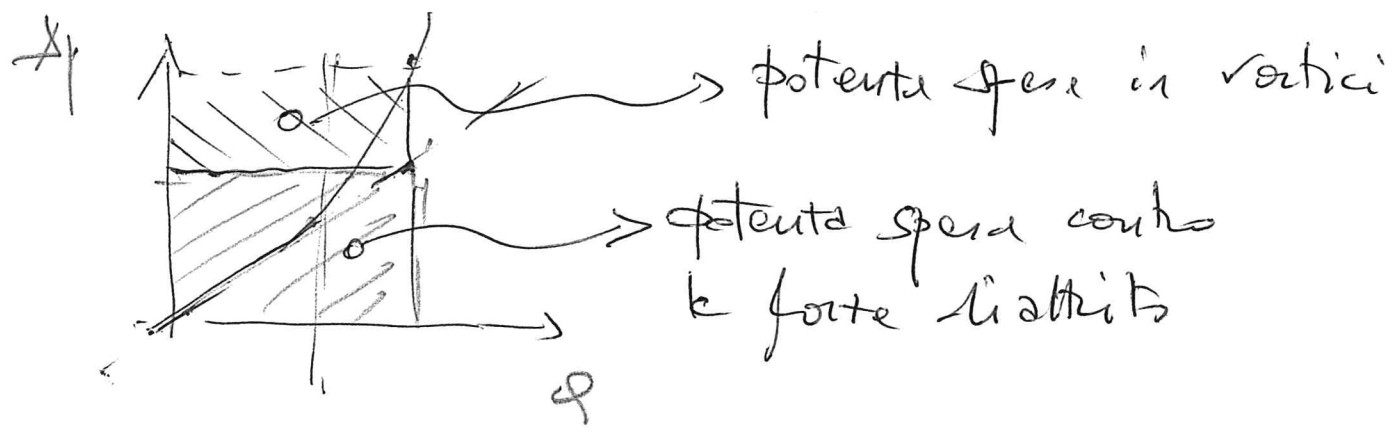 Δp
potenza spesa in vortici
potenza spesa contro
le forze di attrito
φ